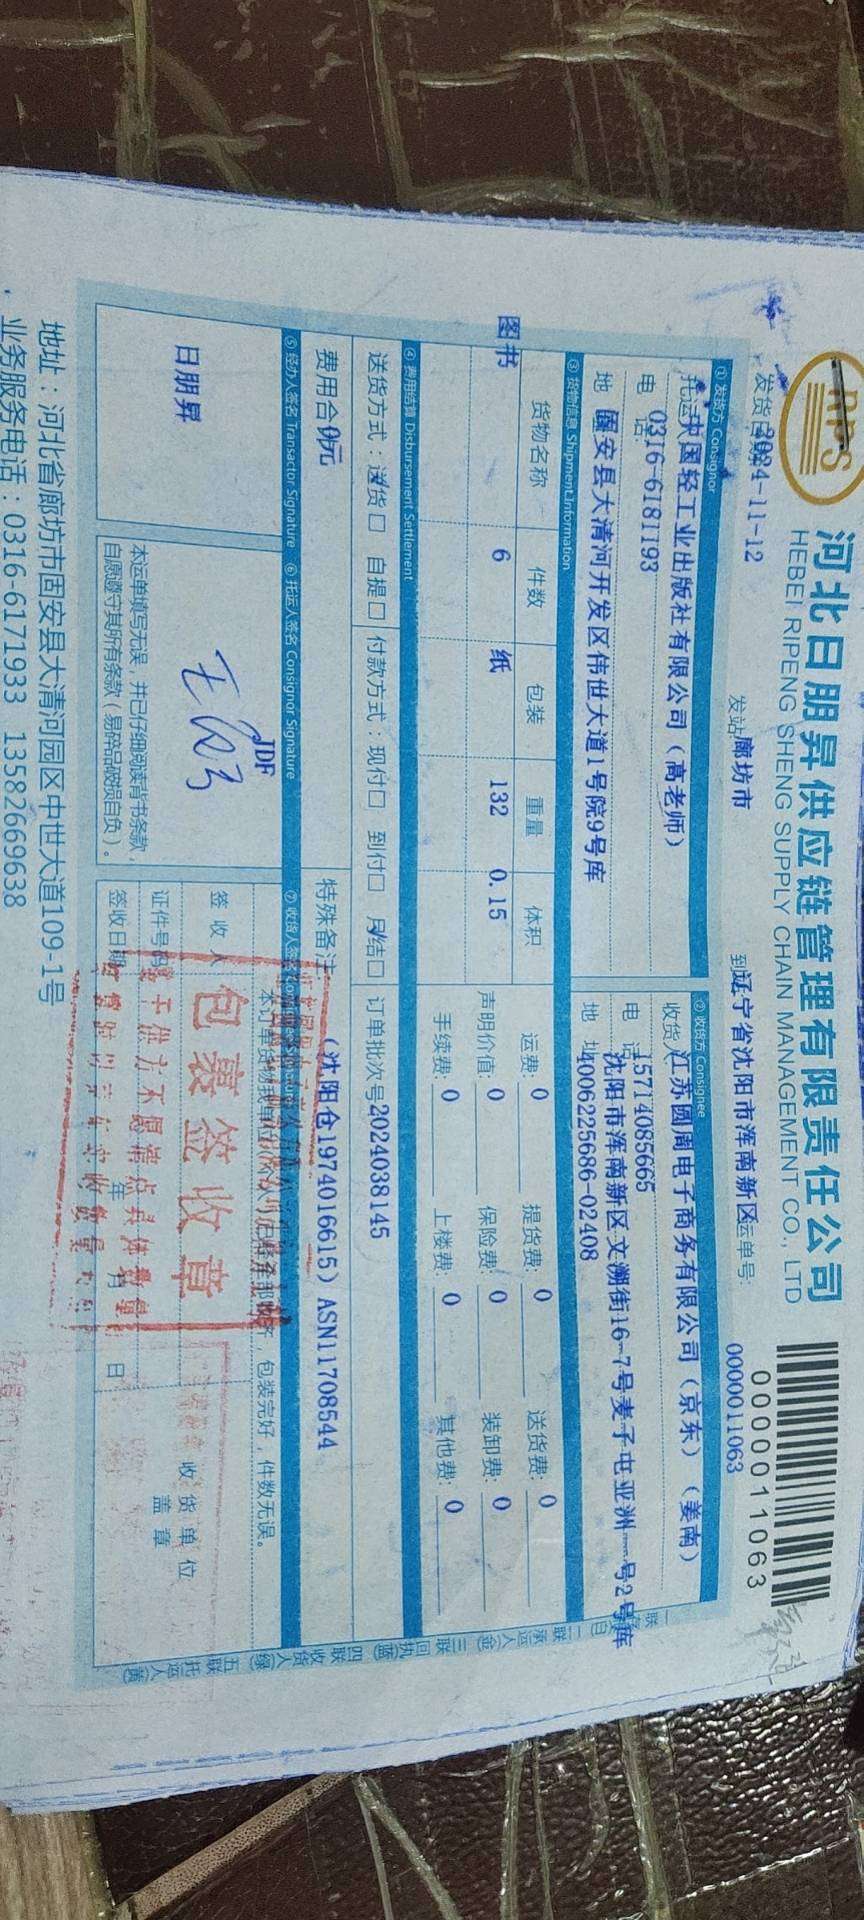 RPS
河北日朋昇供应链管理有限责任公司
HEBEI RIPENG SHENG SUPPLY CHAIN MANAGEMENT CO., LTD
0000011063
发货日期 2024-11-12 发站 廊坊市 到站 辽宁省沈阳市浑南新区 运单号: 0000011063
① 发货方 Consignor
托运人 中国轻工业出版社有限公司(高老师)
电话: 0316-6181193
地址 固安县大清河开发区伟世大道1号院9号库
② 收货方 Consignee
收货人 江苏圆周电子商务有限公司(京东)(姜南)
电话 15714085665
4006225686-02408
地址 沈阳市浑南新区文溯街16-7号麦子屯亚洲一号2号库
③ 货物信息 Shipment Information
货物名称 件数 包装 重量 体积
图书 6 纸 132 0.15
运费: 0 提货费: 0 送货费: 0
声明价值: 0 保险费: 0 装卸费: 0
手续费: 0 上楼费: 0 其他费: 0
④ 费用结算 Disbursement Settlement
送货方式:送货☐ 自提☐ 付款方式:现付☐ 到付☐ 月结☐ 订单批次号 2024038145
费用合 0元
特殊备注 (沈阳仓1974016615) ASN11708544
⑤ 经办人签名 Transactor Signature ⑥ 托运人签名 Consignor Signature ⑦ 收货人签名
日朋昇
JDF
本运单填写无误,并已仔细阅读背书条款,
自愿遵守其所有条款(易碎品破损自负)。
包装完好,件数无误。
签收人
证件号码
签收日期 年 月 日
收货单位
盖章
包裹签收章
地址:河北省廊坊市固安县大清河园区中世大道109-1号
业务服务电话:0316-6171933 13582669638